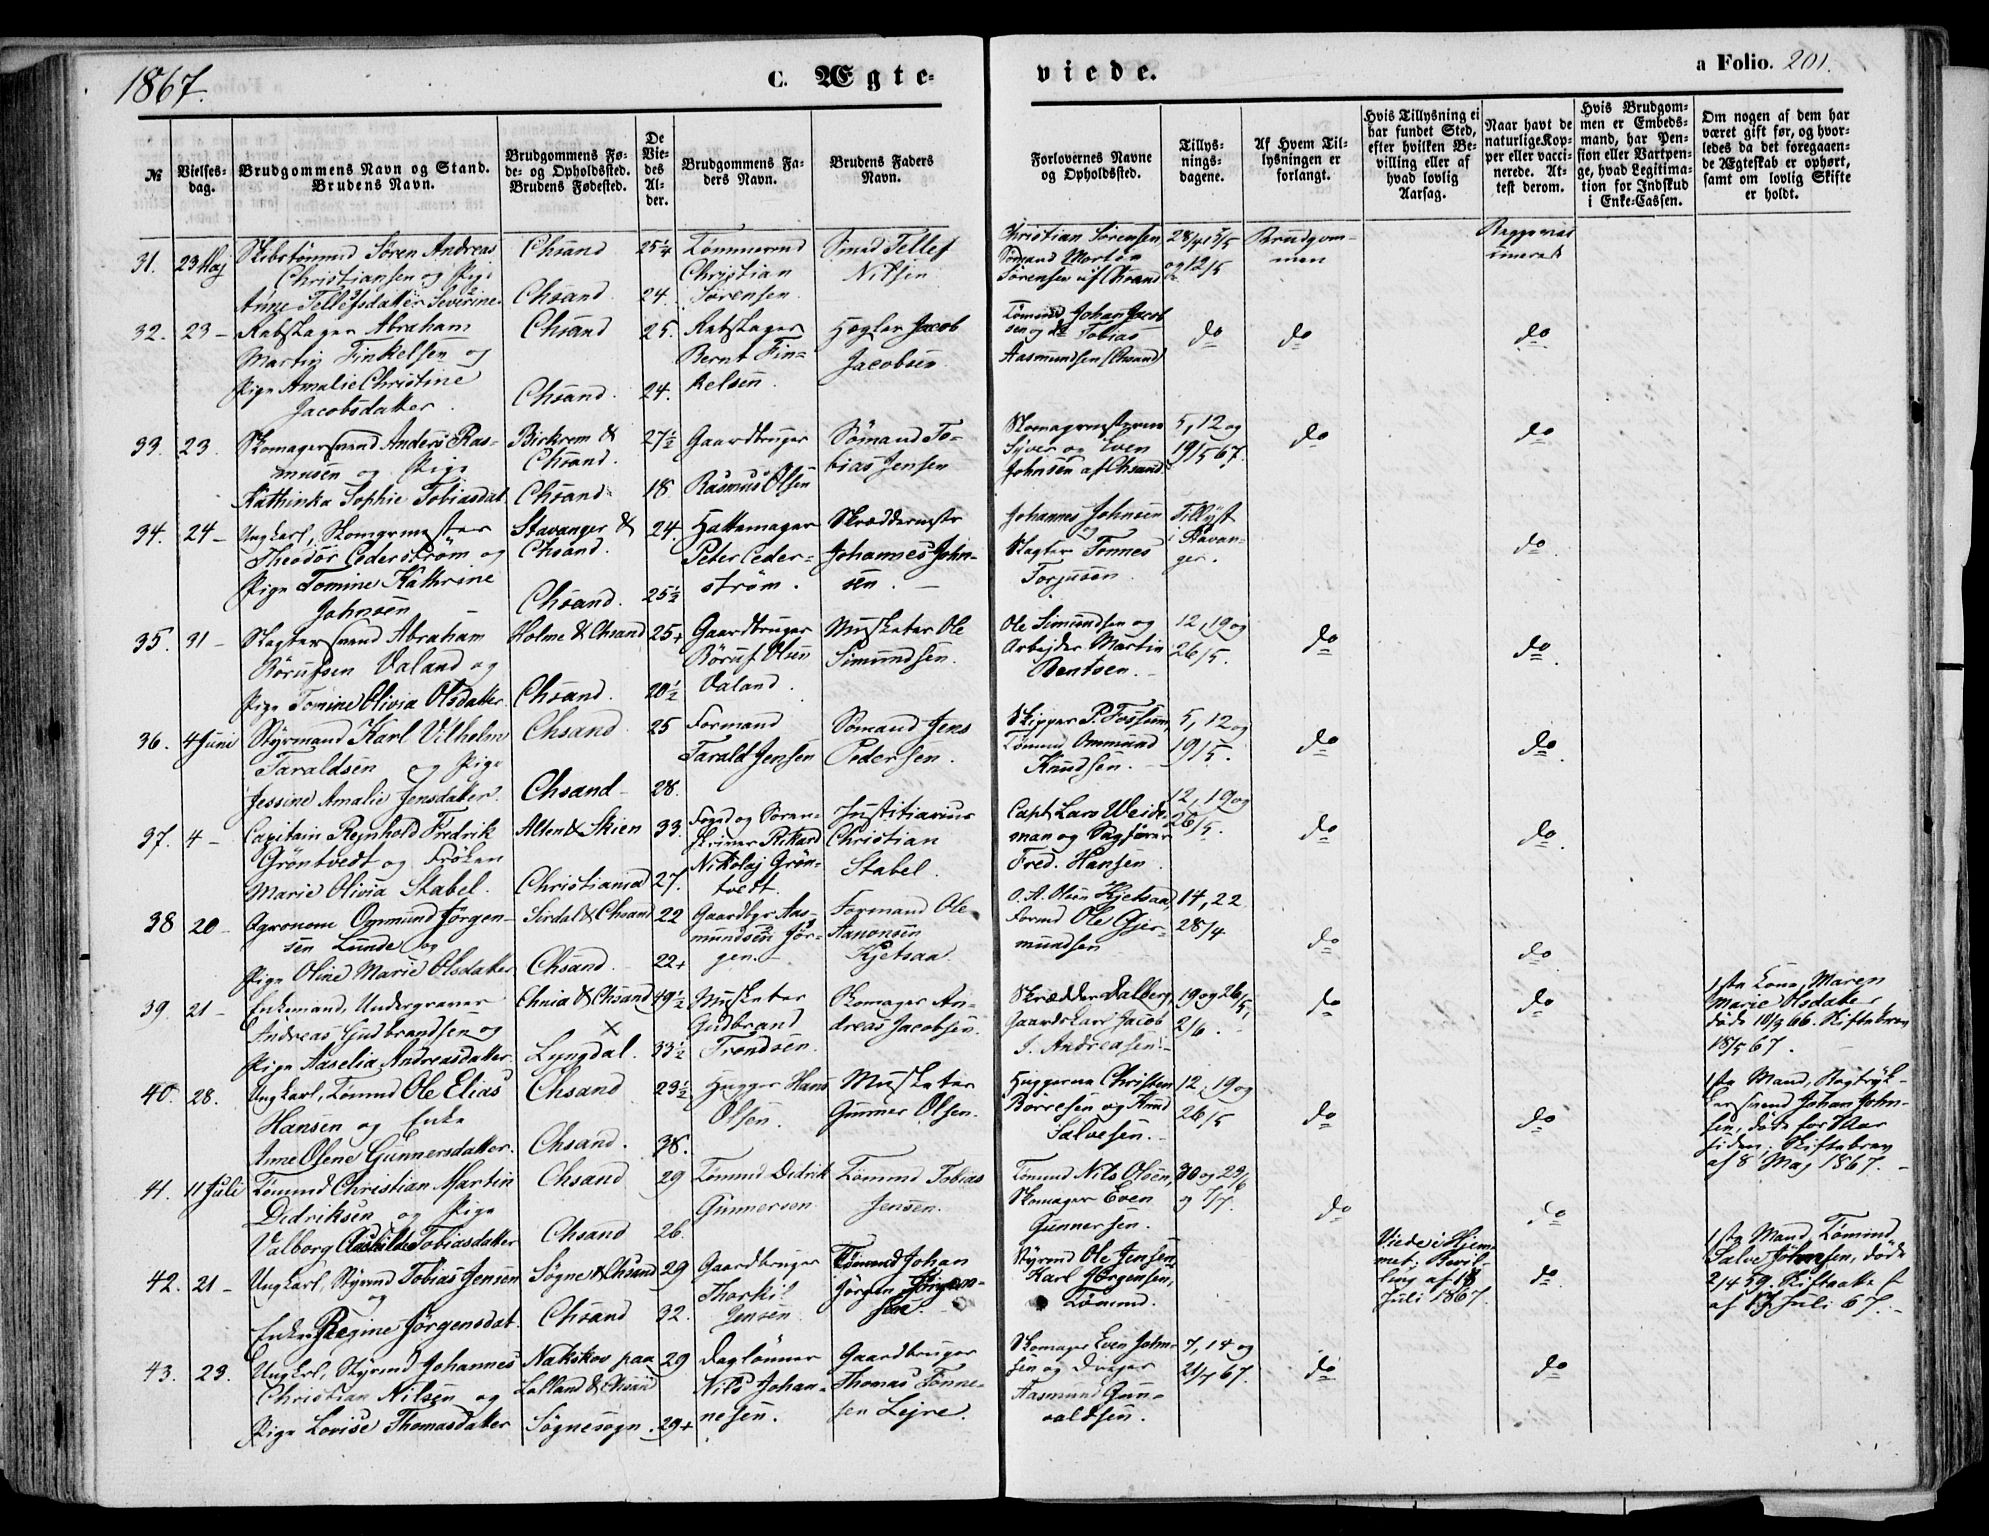 1867.
C. Ægte-
viede.
a Folio. 201.
№
Vielses-
dag.
Brudgommens Navn og Stand.
Brudens Navn.
Brudgommens Fø-
de- og Opholdssted.
Brudens Fødested.
De
Vie-
des
Al-
der.
Brudgommens Fa-
ders Navn.
Brudens Faders
Navn.
Forlovernes Navne
og Opholdssted.
Tillys-
nings-
dagene.
Af Hvem Til-
lysningen er
forlangt.
Hvis Tillysning ei
har fundet Sted,
efter hvilken Be-
villing eller af
hvad lovlig
Aarsag.
Naar havt de
naturlige Kop-
per eller vacci-
nerede. At-
test derom.
Hvis Brudgom-
men er Embeds-
mand, har Pen-
sion eller Vartpen-
ge, hvad Legitima-
tion for Indskud
i Enke-Cassen.
Om nogen af dem har
været gift før, og hvor-
ledes da det foregaaen-
de Ægteskab er ophørt,
samt om lovlig Skifte
er holdt.
31. 23 Maj
Skibstømmd Søren Andreas
Christiansen og Pige
Anne Tellefsdatter Severine
Chsand
Chsand
25 1/4
24.
Tømmermd
Christian
Sørensen.
Smed Tellef
Nilsen
Christian Sørensen
Sømand Martin
Sørensen af Chsand
28/4 5/5
og 12/5
Brudgom-
men
32. 23 -
Rebslager Abraham
Martin Finkelsen og
Pige Amalie Christine
Jacobsdatter.
Chsand
Chsand.
25.
24.
Rebslager
Bernt Fin-
kelsen.
Hegler Jacob
Jacobsen
Tømmd Johan Jacob
sen og do Tobias
Aasmundsen (Chsand)
do
do
do
33. 23.
Skomagersvend Anders Ras-
musen og Pige
Kathinka Sophie Tobiasdat.
Birkrem &
Chsand.
Chsand
27 1/2
18
Gaardbruger
Rasmus Olsen
Sømand To-
bias Jensen
Skomagermesterne
Syver og Even
Johnsen af Chsand
5, 12 og
19/5 67.
do
do
34. 24 -
Ungkarl, Skomgrmester
Theodor Cederstrøm og
Pige Tomine Kathrine
Johnsen
Stavanger &
Chsand.
Chsand.
24.
25 1/2
Hattemager
Peter Ceder-
strøm.
Skræddermstr
Johannes John-
sen.
Johannes Johnsen
og
Slagter Tønnes
Torjusen.
Tillyst
i Stavan-
ger.
do.
35. 31 -
Slagtersvend Abraham
Børufsen Valand og
Pige Tomine Olivia Olsdatter
Holme & Chsand
Chsand.
25+
20 1/2
Gaardbruger
Børuf Olsen
Valand.
Musketer Ole
Simundsen.
Ole Simundsen og
Arbejder Martin
Bentsen.
12, 19 og
26/5.
do
do.
36. 4 Juni
Styrmand Karl Vilhelm
Taraldsen og Pige
Jessine Amalie Jensdatter.
Chsand.
Chsand
25
28.
Formand
Tarald Jensen
Sømand Jens
Pedersen.
Skipper P. Fossum,
Tømmd Ommund
Knudsen.
5, 12 og
19/5.
do
do.
37. 4 -
Capitain Reinhold Fredrik
Grøntvedt og Frøken
Marie Olivia Stabel.
Alten & Skien
Christiania
33.
27.
Foged og Soren-
skriver Rikard
Nikolaj Grøn-
tvedt.
Justitiarius
Christian
Stabel.
Capt Lars Weide-
man og Sagfører
Fred. Hansen.
12, 19 og
26/5.
do
do.
38 20 -
Agronom Ommund Jørgen-
sen Lunde og
Pige Oline Marie Olsdatter
Sirdal & Chsand
Chsand.
22
22+
Gaardbgr Aas-
mundsen Jør-
gen.
Formand Ole
Aanonsen
Kjetsaa.
O. A. Olsen Kjetsaa,
Formd Ole Gjer-
mundsen
14, 22
28/4
do
do
39. 21 -
Enkemand, Undergraver
Andreas Gudbrandsen og
Pige Aaselia Andreasdatter.
Chnia & Chsand
×
Lyngdal.
49 1/2
33 1/2
Musketer
Gudbrand
Trondsen.
Skomager An-
dreas Jacobsen.
Skrædder Dalberg,
Gaardskarl Jacob
J. Andreasen.
19 og 26/5,
2/6.
do
do
1ste Kone, Maren
Marie Olsdatter
døde 10/9 66. Skiftebrev
18/5 67.
40. 28.
Ungkarl, Tømmd Ole Elias
Hansen og Enke
Anne Olene Gunnersdatter.
Chsand
Chsand.
23 1/2
38.
Hugger Hans
Olsen.
Musketer
Gunner Olsen.
Huggerne Christen
Børresen og Knud
Salvesen.
12, 19 og
26/5
do
do
1ste Mand, Bogtryk-
kersvend Johan John-
sen, døde for 7 Aar
siden. Skiftebrev
af 8 Maj 1867.
41. 11 Juli
Tømmd Christian Martin
Didriksen og Pige
Valborg Aashilde Tobiasdatter
Chsand
Chsand
29
26.
Tømmd Didrik
Gunnersen
Tømmd Tobias
Jensen.
Tømmd Nils Olsen,
Skomager Even
Gunnersen.
30 og 29/6
og 7/7.
do
do
42. 21 -
Ungkarl, Styrmd Tobias Jensen
og
Enke Regine Jørgensdat.
Søgne & Chsand
Chsand
29
32.
Gaardbruger
Thorkil
Jensen
Tømmd Johan
Jørgen Jørgen-
sen.
Styrmd Ole Jensen,
Karl Jørgensen,
Tømmd.
Viede i Hjem-
met, Bevil-
ling af 18
Juli 1867.
do.
1ste Mand, Tømmd
Salve Johnsen, døde
2/4 59. Skifteattest
af 17 Juli 67.
43. 23.
Ungkrl, Styrmd Johannes
Christian Nilsen og
Pige Lovise Thomasdatter
Nakskov paa
Lolland & Chsand
Søgnesogn.
29
29+
Daglønner
Nils Johan-
nesen.
Gaardbruger
Thomas Tønne-
sen Lejre.
Skomager Even John-
sen og Drejer
Aasmund Gun-
valdsen.
7, 14 og
21/7 67.
do
do